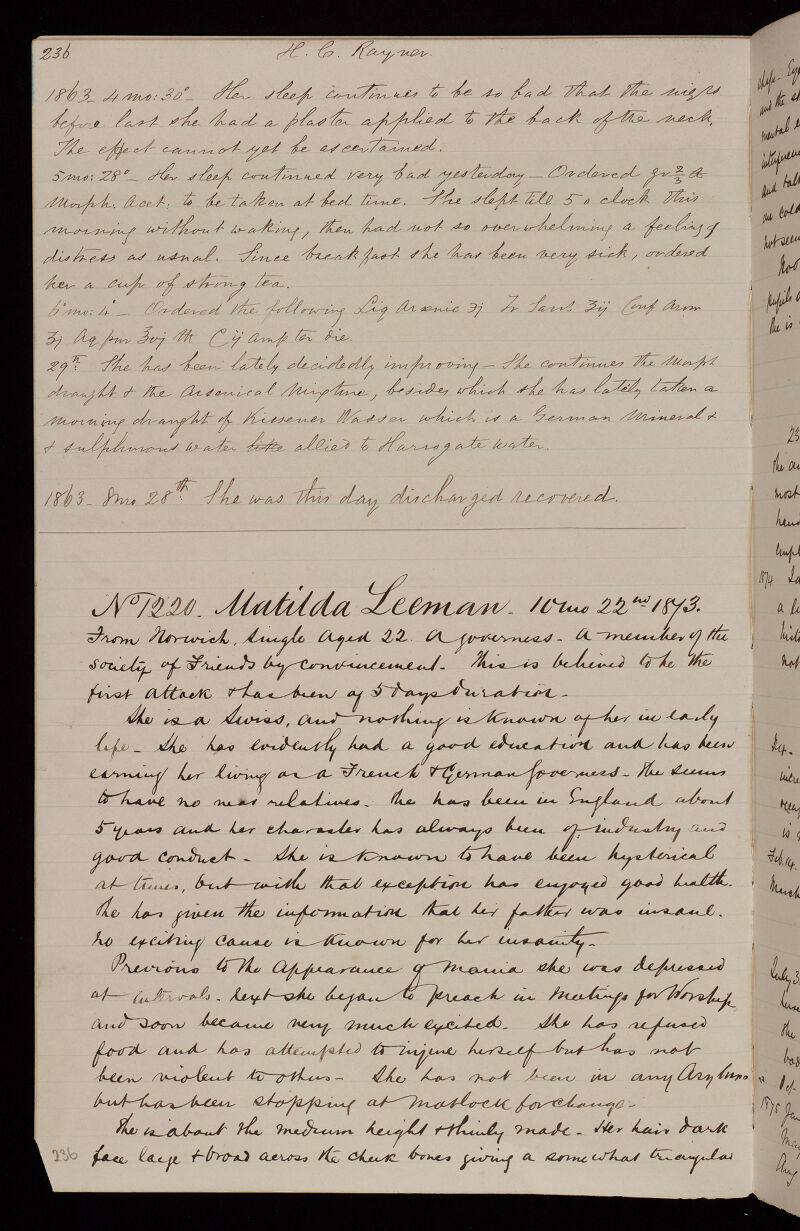 236 H. C. Rayner.
1863 - 4 mo: 30° - Her sleep continues to be so bad that the night
before last she had a plaster applied to the back of the neck.
The effect cannot yet be ascertained.
5 mo: 28° - Her sleep continued very bad yesterday - Ordered gr 2/3
Morph. Acet. to be taken at bed time. She slept till 5 o clock this
morning without waking, then had not so overwhelming a feeling of
distress as usual. Since breakfast she has been very sick, ordered
her a cup of strong tea.
6 mo: 4° - Ordered the following Liq Arsenic ʒj Conf Arom
ʒj Aq pur ʒvj
29th. She has been lately decidedly improving - She continues the Morph
draught & the Arsenical Mixture, besides which she has lately taken a
morning draught of Kissener Wasser which is a German Mineral &
& sulphurous water like allied to Harrogate water.
1863 - 8 mo 28th. She was this day discharged recovered.
No 1220. Matilda Leeman. 10 mo 22nd 1873.
From Norwich, Single Aged 22. A governess - A member of the
society of Friends by convincement. This is believed to be the
first attack & has been of 5 days duration -
She is a Swiss, and nothing is known of her in early
life - She has evidently had a good education and has been
earning her living as a French & German Governess - She seems
to have no near relatives. She has been in England about
5 years and her character has always been of industry and
good conduct - She is known to have been hysterical
at times, but with that exception has enjoyed good health.
She has given the information that her father was insane.
No exciting cause is known for her insanity -
Previous to the Appearance of Mania she was depressed
at intervals. Next she began to preach in Meetings for Worship
and soon became very much excited. She has refused
food and has attempted to injure herself but has not
been violent to others - She has not been in any Asylum
but has been stopping at Matlock for change -
She is about the medium height & thinly made - Her hair dark
face large & broad across the cheek bones giving a somewhat triangular
236